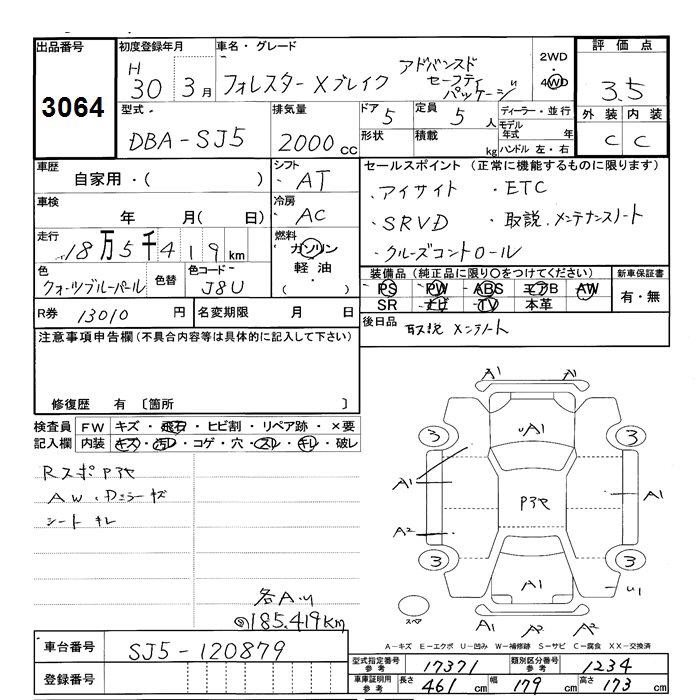 出品番号 初度登録年月 車名・グレード 2WD 評価点
3064 H 30 3月 フォレスター Xブレイク アドバンスドセーフティパッケージ ・ 4WD 3.5
型式・ 排気量 ドア 定員 ディーラー・並行 外装 内装
DBA-SJ5 2000cc 5 5人 モデル年式 年 C C
形状 積載 kg ハンドル 左・右
車歴 シフト セールスポイント (正常に機能するものに限ります)
自家用・( ) AT ・アイサイト ・ETC
車検 冷房
年 月( 日) AC ・SRVD ・取説、メンテナンスノート
走行 燃料
18万5千419km ガソリン ・クルーズコントロール
色 色替 色コード 軽油 装備品 (純正品に限り○をつけてください) 新車保証書
クォーツブルーパール J8U ・( ) PS PW ABS エアB AW 有・無
SR ナビ TV 本革
R券 13010円 名変期限 月 日 後日品 取説 メンテノート
注意事項申告欄(不具合内容等は具体的に記入して下さい)
修復歴 有 〔箇所 〕
検査員 FW キズ・飛石・ヒビ割・リペア跡・×要
記入欄 内装 キズ・汚レ・コゲ・穴・スレ・キレ・破レ
A1 A1
A1
3 3
Rスポアアヤ
AW、Dミラーキズ
A1 アアヤ A1
シートキレ
A2
3 3
各Aツ A1 U1
185.419KM スペア
A2 A2
A-キズ E-エクボ U-凹み W-補修跡 S-サビ C-腐食 XX-交換済
車台番号 SJ5-120879
型式指定番号 参考 17371 類別区分番号 参考 1234
登録番号
車庫証明用 参考 長さ 461cm 幅 179cm 高さ 173cm